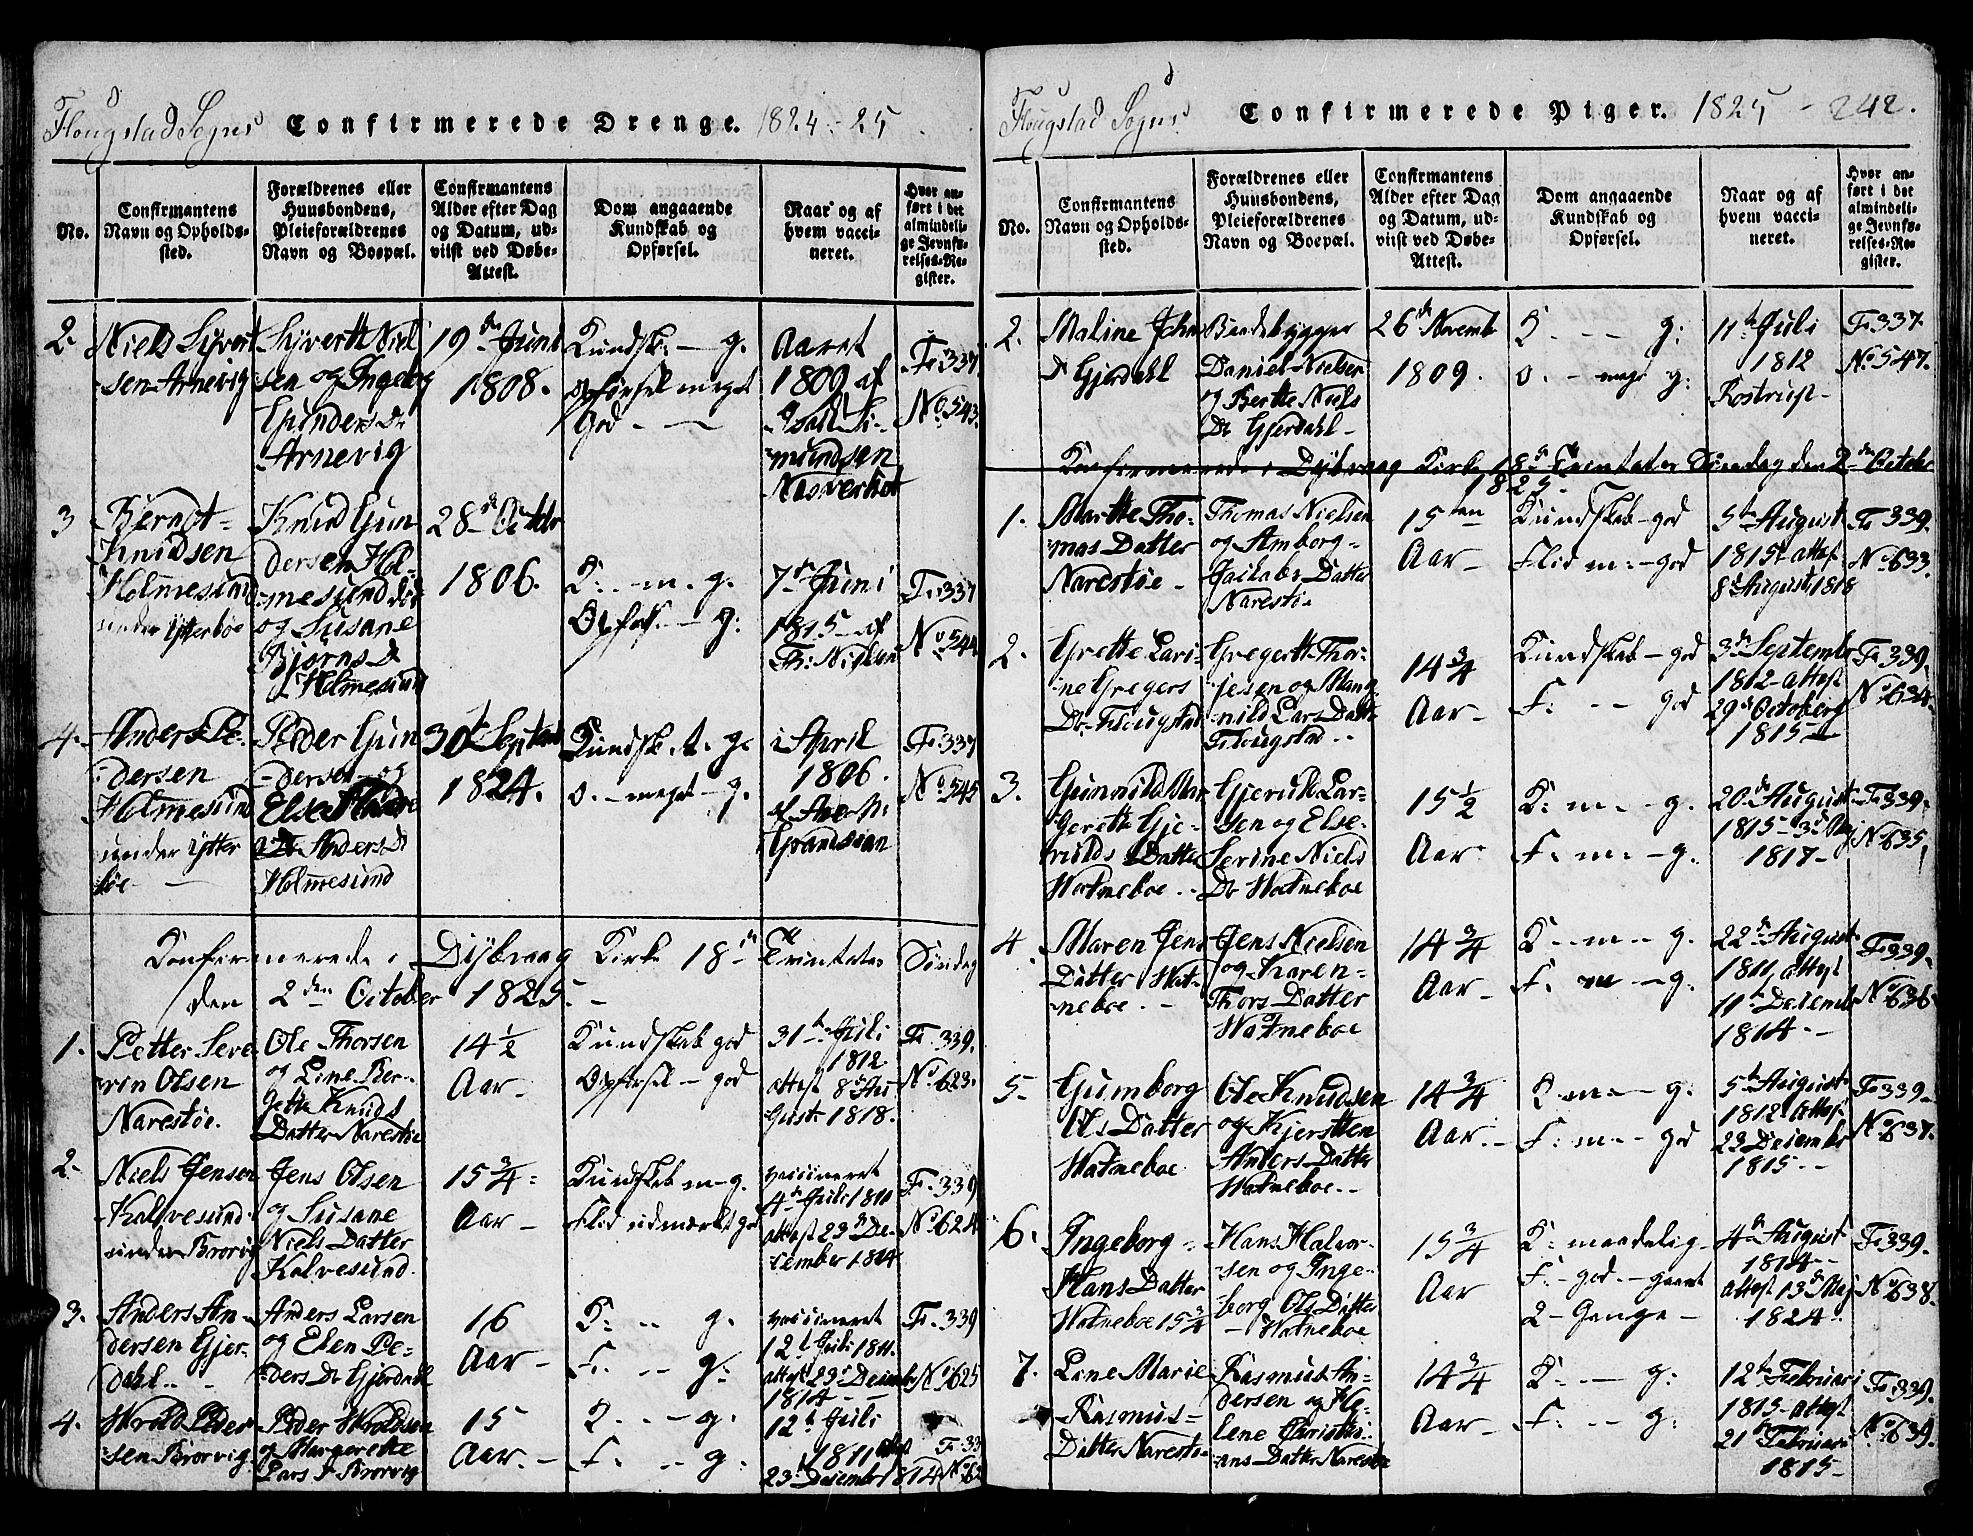 Flougstad Sogns Confirmerede Drenge. 1824-25
No.
Confirmantens
Navn og Opholds-
sted.
Forældrenes eller
Huusbondens,
Pleieforældrenes
Navn og Boepæl.
Confirmantens
Alder efter Dag
og Datum, ud-
viist ved Døbe-
Attest.
Dom angaaende
Kundskab og
Opførsel.
Naar og af
hvem vacci-
neret.
Hvor an-
ført i det
almindeli-
ge Jevnfø-
relses-Re-
gister.
2.
Niels Syvert
sen Arnevig
Syvertt Niel
sen og Ingeborg
Gunders Dr
Arnevig
19de Juni
1808.
Kundsk: - g.
Opførsel meget
God - -
Aaret
1809 af
Isak Si-
mundsen
Næsverket
Fr. 337
No. 543.
3
Berndt
Knudsen
Holmesund
under Ytterbøe
Knud Gun
dersen Hol-
mesund død
og Susane
Bjørns D
Holmesund
28de Octbr
1806.
K: - m. g.
Opførs. - g:
7de Juni
1815 af
Th: Nielsen
Fr. 337
No 544
4.
Anders Pe-
dersen
Holmesund
under Ytter
bøe -
Peder Gun
dersen og
Else
Anders D
Holmesund
30te Septem
1824.
Kundsk. t. g.
O. - meget - g.
i April
1806.
Fr. 337
No 545
Konfirmerede i Dybvaag Kirke 18de Trinitatis Søndag
den 2den October 1825. -
1.
Petter Seve
rin Olsen
Narestøe.
Ole Thorsen
og Line Ber-
gette Knuds
Datter Narestøe
14 1/2
Aar -
Kundskab god
Opførsel - god
31te Juli
1812
attest 8de Au-
gust 1818.
Fr. 339.
No. 623.
2.
Niels Jensen
Kalvesund
under Brorvig
Jens Olsen
og Susane
Niels Datter
Kalvesund.
15 3/4
Aar -
Kundskab m - g.
Flid udmærket god
vaccineret
4de Juli 1810
attest 23de De-
cember 1814
Fr. 339
No. 624
3.
Anders An-
dersen Gjer-
dahl. -
Anders Larsen
og Elen Pe-
ders Dr Gjerdahl
16
Aar -
K: - - g.
F. - - g:
vaccineret
12te Juli 1811.
attest 23de Decemb
1814 - -
Fr. 339
No. 625
4.
Wrold Peder
sen Brorvig
Peder Wroldsen
og Margrette
Lars D Brorvig
15
Aar. -
K - - - g.
F. - - g.
12te Juli
1811 attest
23de Decembr 1814
Fr. 33
No. 62
Flougstad Sogns Confirmerede Piger. 1825 - 242.
No.
Confirmantens
Navn og Opholds-
sted.
Forældrenes eller
Huusbondens,
Pleieforældrenes
Navn og Boepæl.
Confirmantens
Alder efter Dag
og Datum, ud-
viist ved Døbe-
Attest.
Dom angaaende
Kundskab og
Opførsel.
Naar og af
hvem vacci-
neret.
Hvor an-
ført i det
almindeli-
ge Jevnfø-
relses-Re-
gister.
2.
Maline
D Gjerdahl
Baadsbygger
Daniel Nielsen
og Berthe Niels
Dr Gjerdahl -
26de Novemb
1809.
K - - g:
O. - meget g:
11te Juli
1812
Rostrup -
Fr. 337.
No. 547.
Konfirmerede i Dybvaag Kirke 18de Trinitatis Søndag den 2den October
1825.
1.
Marthe Tho-
mas Datter
Narestøe -
Thomas Nielsen
og Amborg
Jackobs Datter
Narestøe
15ten
Aar -
Kundskab - god
Flid m: - god
5te August
1815 attest
8de August 1818
Fr. 339.
No. 633.
2.
Grette Lari-
ne Gregers
Dr. Flougstad
Gregertt Thor-
jesen og Mang-
nild Lars Datter
Flougstad - -
14 3/4
Aar -
Kundskab - god
F: - - god
3de Septembr
1812 attest
29de October
1815 -
Fr. 339.
No. 634
3.
Gunnild Mar
grette Gje-
rulds Datter
Watneboe - -
Gjerul Lar-
sen og Else
Serine Niels
Dr Watneboe
15 1/2
Aar
K: m - - g.
F. m. - g.
20de August
1815 - 3de Maj
1817 -
Fr. 339.
No 635
4
Maren Jens
Datter Wat-
neboe. -
Jens Nielsen
og Karen
Thors Datter
Watneboe
14 3/4
Aar -
K - - m - - g.
F. m - - g.
22de August
1811, attest
11te Decemb
1814. -
Fr. 339.
No. 636
5-
Gumborg
Ols Datter
Watneboe
Ole Knudsen
og Kjerstten
Anders Datter
Watneboe. -
14 3/4
Aar. -
K - m - - g:
F: m - - god
5te August
1812 Attest
23de Decembr
1815 - -
Fr. 339.
No. 637.
6.
Ingeborg
Hans Datter
Watneboe 15 3/4
Hans Halvor
sen og Inge-
borg Ols Datter
- Watneboe
15 3/4
Aar
K: maadelig
F. - god - gaaet
2 - Gange -
4de August
1814 -
attest 13de Maj
1824.
Fr. 339.
No. 638.
7.
Line Marie
Rasmus
Datter Narestøe
Rasmus An-
dersen og He-
lene Christi-
ans Datter Narestøe
14 3/4
Aar -
K - - - g:
F. - - g:
12te Februari
1815 attest
21de Februari
1815 -
Fr. 339.
No. 639.